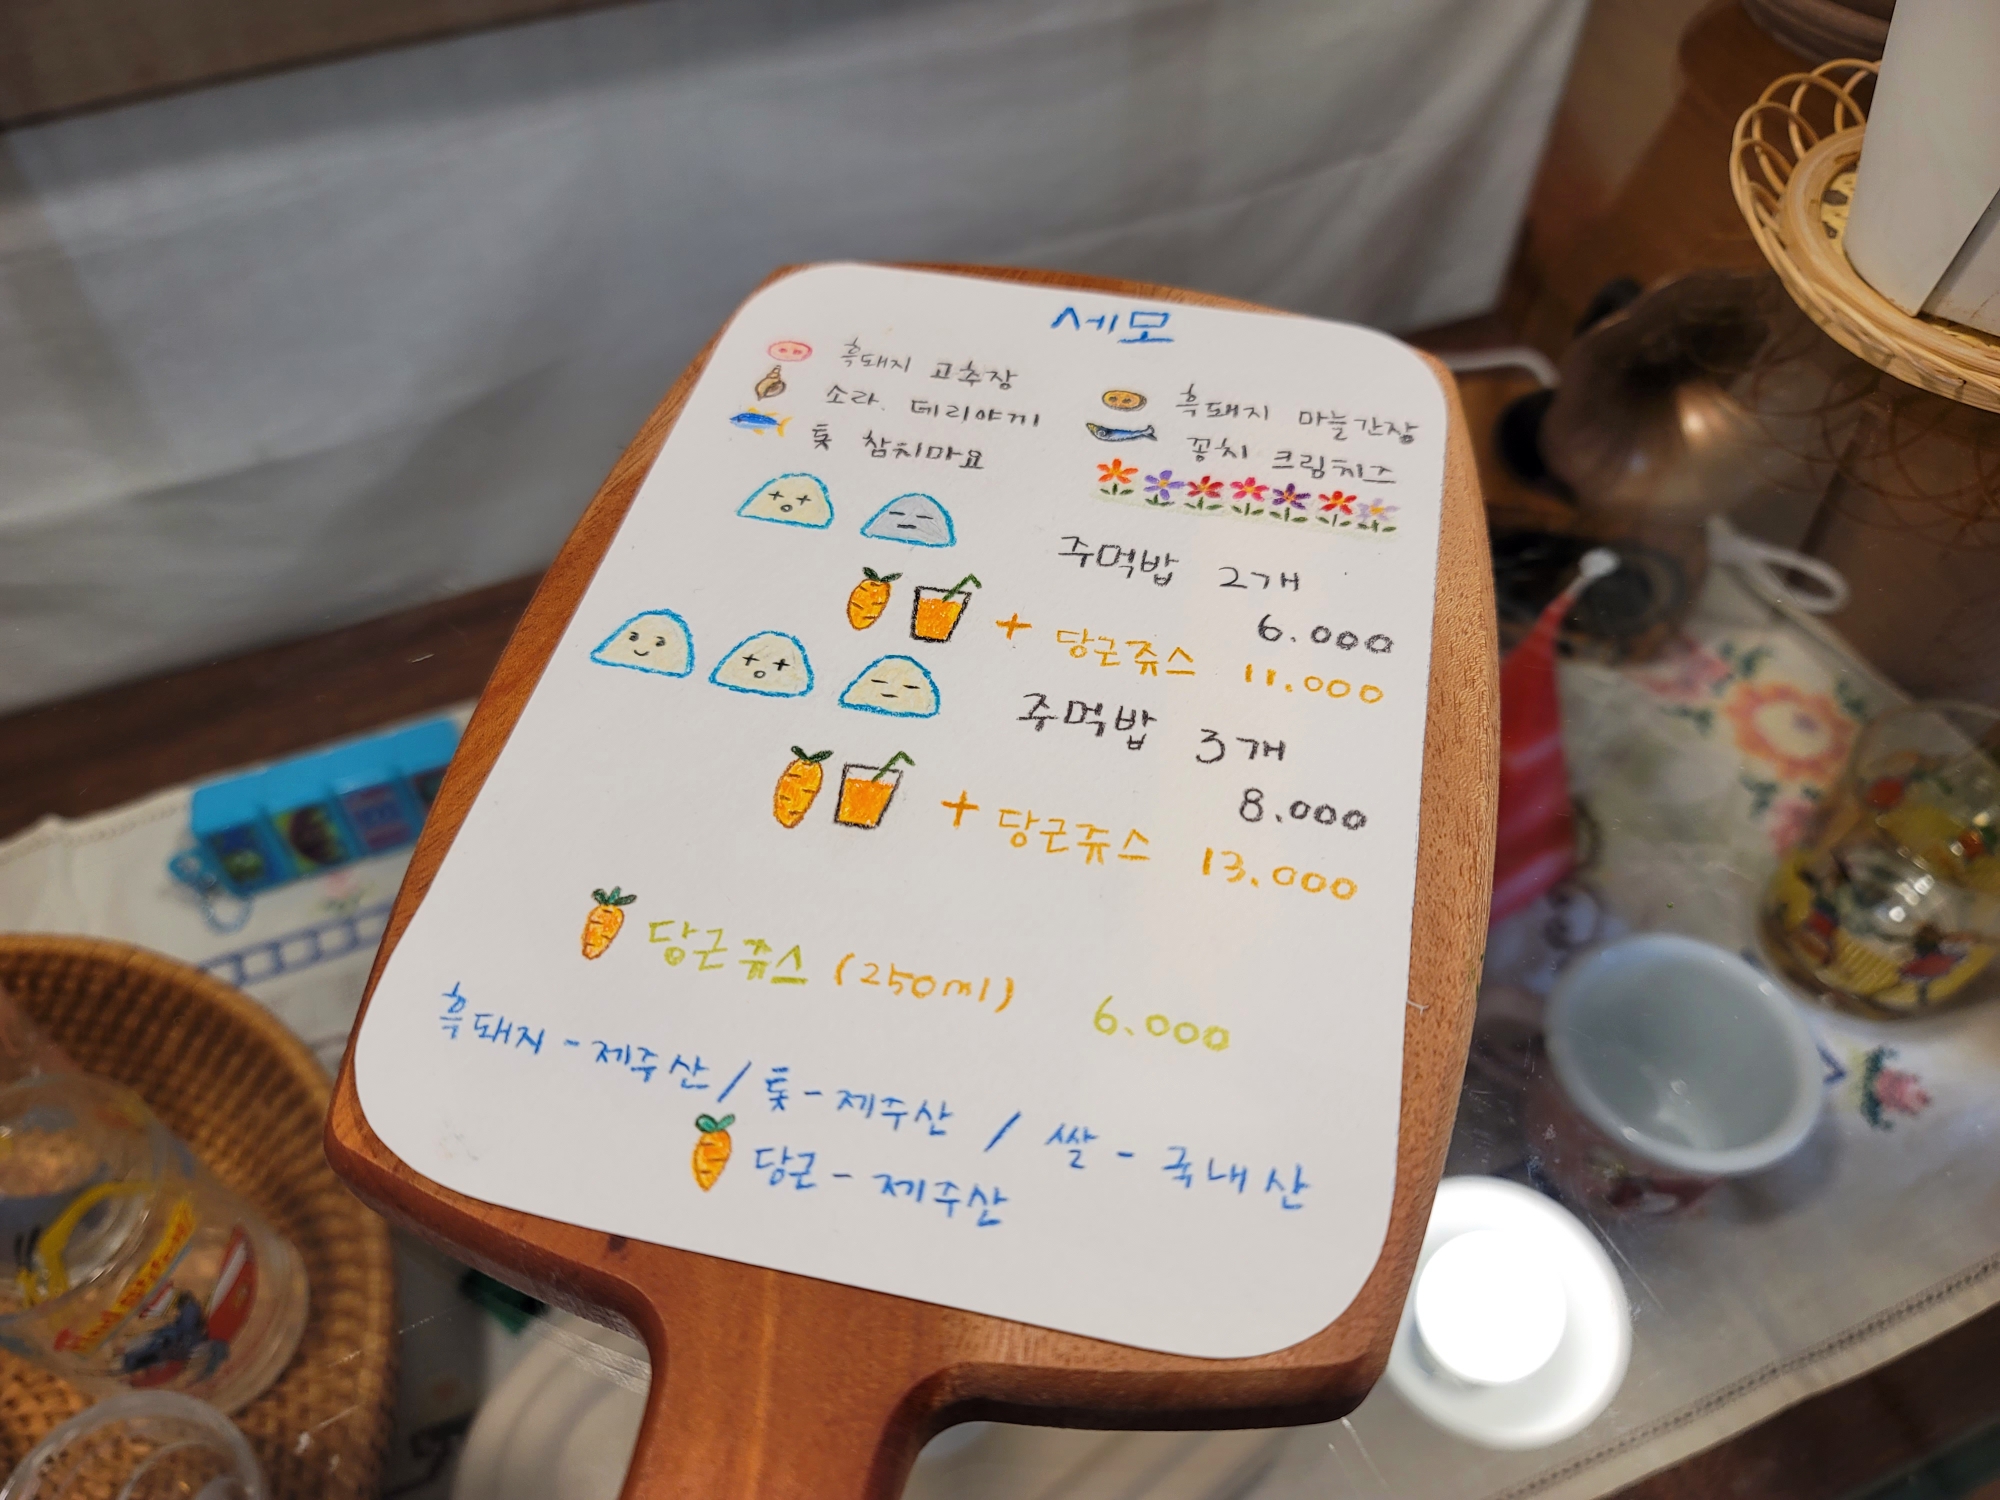 세모
흑돼지 고추장
소라. 데리야끼
톳 참치마요
흑돼지 마늘간장
꽁치 크림치즈
주먹밥 2개
6.000
+ 당근쥬스 11.000
주먹밥 3개
8.000
+ 당근쥬스 13.000
당근쥬스 (250ml) 6.000
흑돼지 - 제주산 / 톳 - 제주산 / 쌀 - 국내산
당근 - 제주산